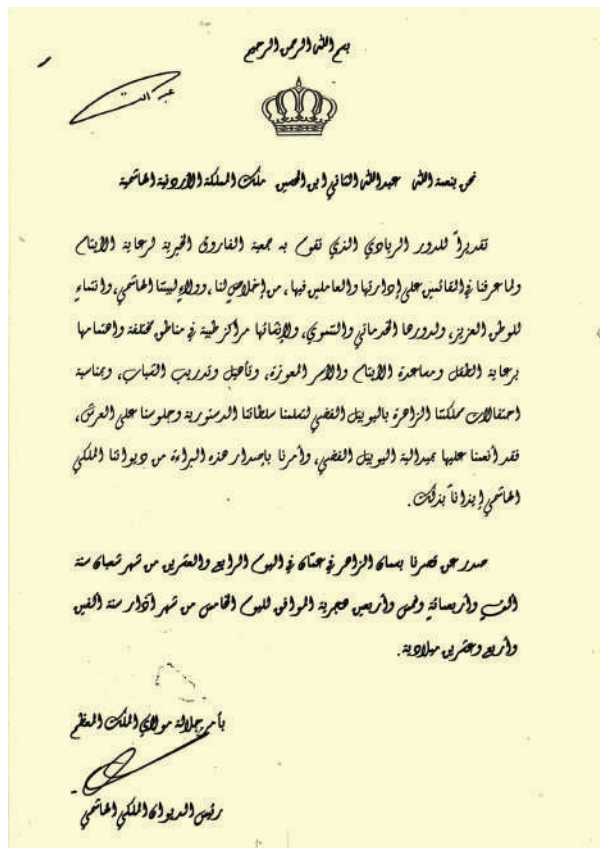 بسم الله الرحمن الرحيم
عبدالله
نحن بنعمة الله عبدالله الثاني ابن الحسين ملك المملكة الأردنية الهاشمية
تقديراً للدور الريادي الذي تقوم به جمعية الفاروق الخيرية لرعاية الأيتام
ولما عرفنا في القائمين على إدارتها والعاملين فيها، من إخلاص لنا، وولاء لبيتنا الهاشمي، وانتماء
للوطن العزيز، ولدورها الخدماتي والتنموي، ولإنشائها مراكز طبية في مناطق مختلفة واهتمامها
برعاية الطفل ومساعدة الأيتام والأسر المعوزة، وتأهيل وتدريب الشباب، وبمناسبة
احتفالات مملكتنا الزاهرة باليوبيل الفضي لتسلمنا سلطاتنا الدستورية وجلوسنا على العرش،
فقد أنعمنا عليها بميدالية اليوبيل الفضي، وأمرنا بإصدار هذه البراءة من ديواننا الملكي
الهاشمي إيذاناً بذلك.
صدر عن قصرنا بسمان الزاهر في عمّان في اليوم الرابع والعشرين من شهر شعبان سنة
ألف وأربعمائة وخمس وأربعين هجرية الموافق لليوم الخامس من شهر آذار سنة ألفين
وأربع وعشرين ميلادية.
بأمر جلالة مولاي الملك المعظم
رئيس الديوان الملكي الهاشمي